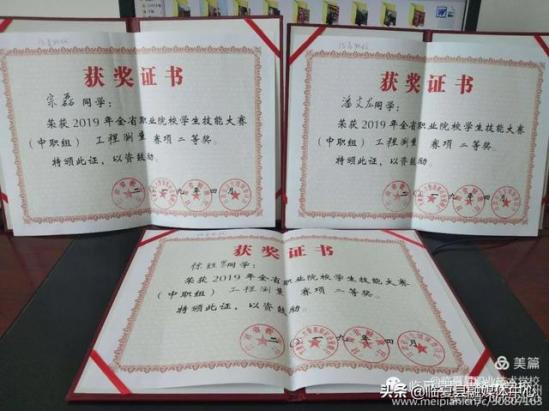 获奖证书
宗磊同学：
荣获2019年全省职业院校学生技能大赛
（中职组）工程测量赛项二等奖。
特颁此证，以资鼓励。
二〇一九年四月
获奖证书
潘文龙同学：
荣获2019年全省职业院校学生技能大赛
（中职组）工程测量赛项二等奖。
特颁此证，以资鼓励。
二〇一九年四月
获奖证书
同学：
荣获2019年全省职业院校学生技能大赛
（中职组）工程测量赛项二等奖。
特颁此证，以资鼓励。
二〇一九年四月
美篇
头条 @临夏县融媒体中心